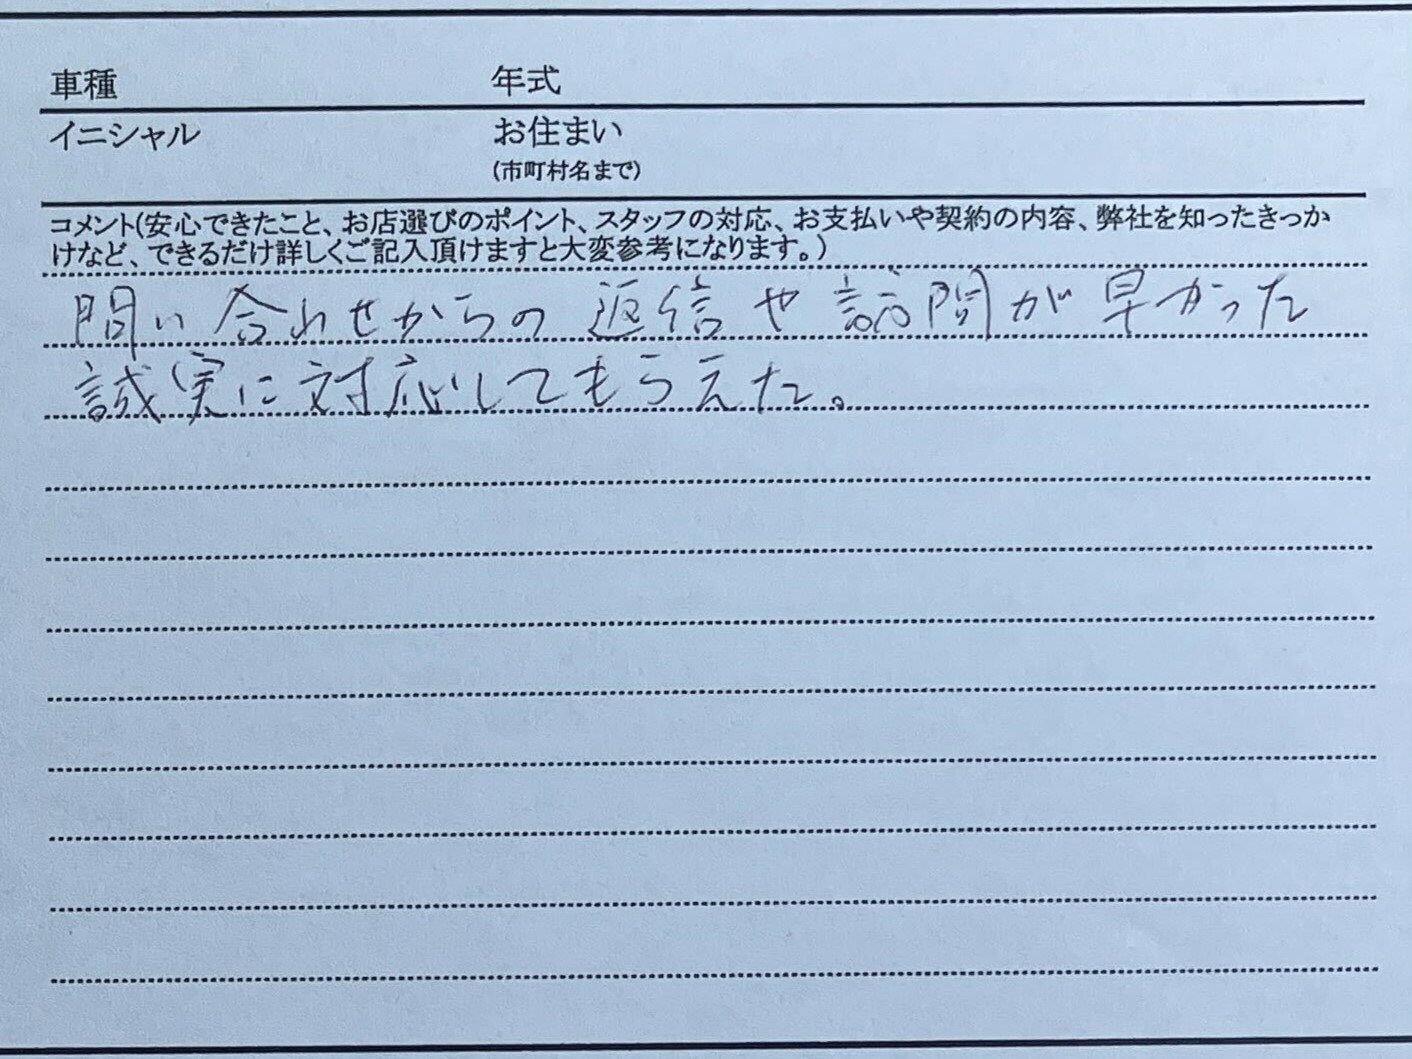 車種 年式
イニシャル お住まい
(市町村名まで)
コメント(安心できたこと、お店選びのポイント、スタッフの対応、お支払いや契約の内容、弊社を知ったきっか
けなど、できるだけ詳しくご記入頂けますと大変参考になります。)
問い合わせからの返信や訪問が早かった
誠実に対応してもらえた。